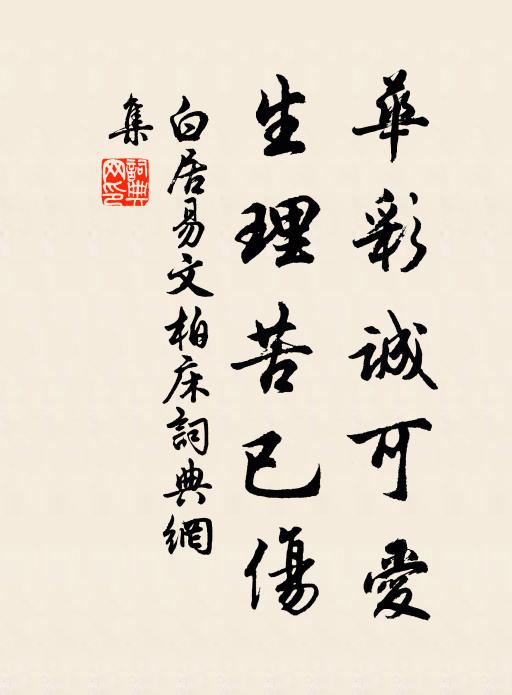 華彩誠可愛
生理苦已傷
白居易文柏床詞典網
集
詞典
网印